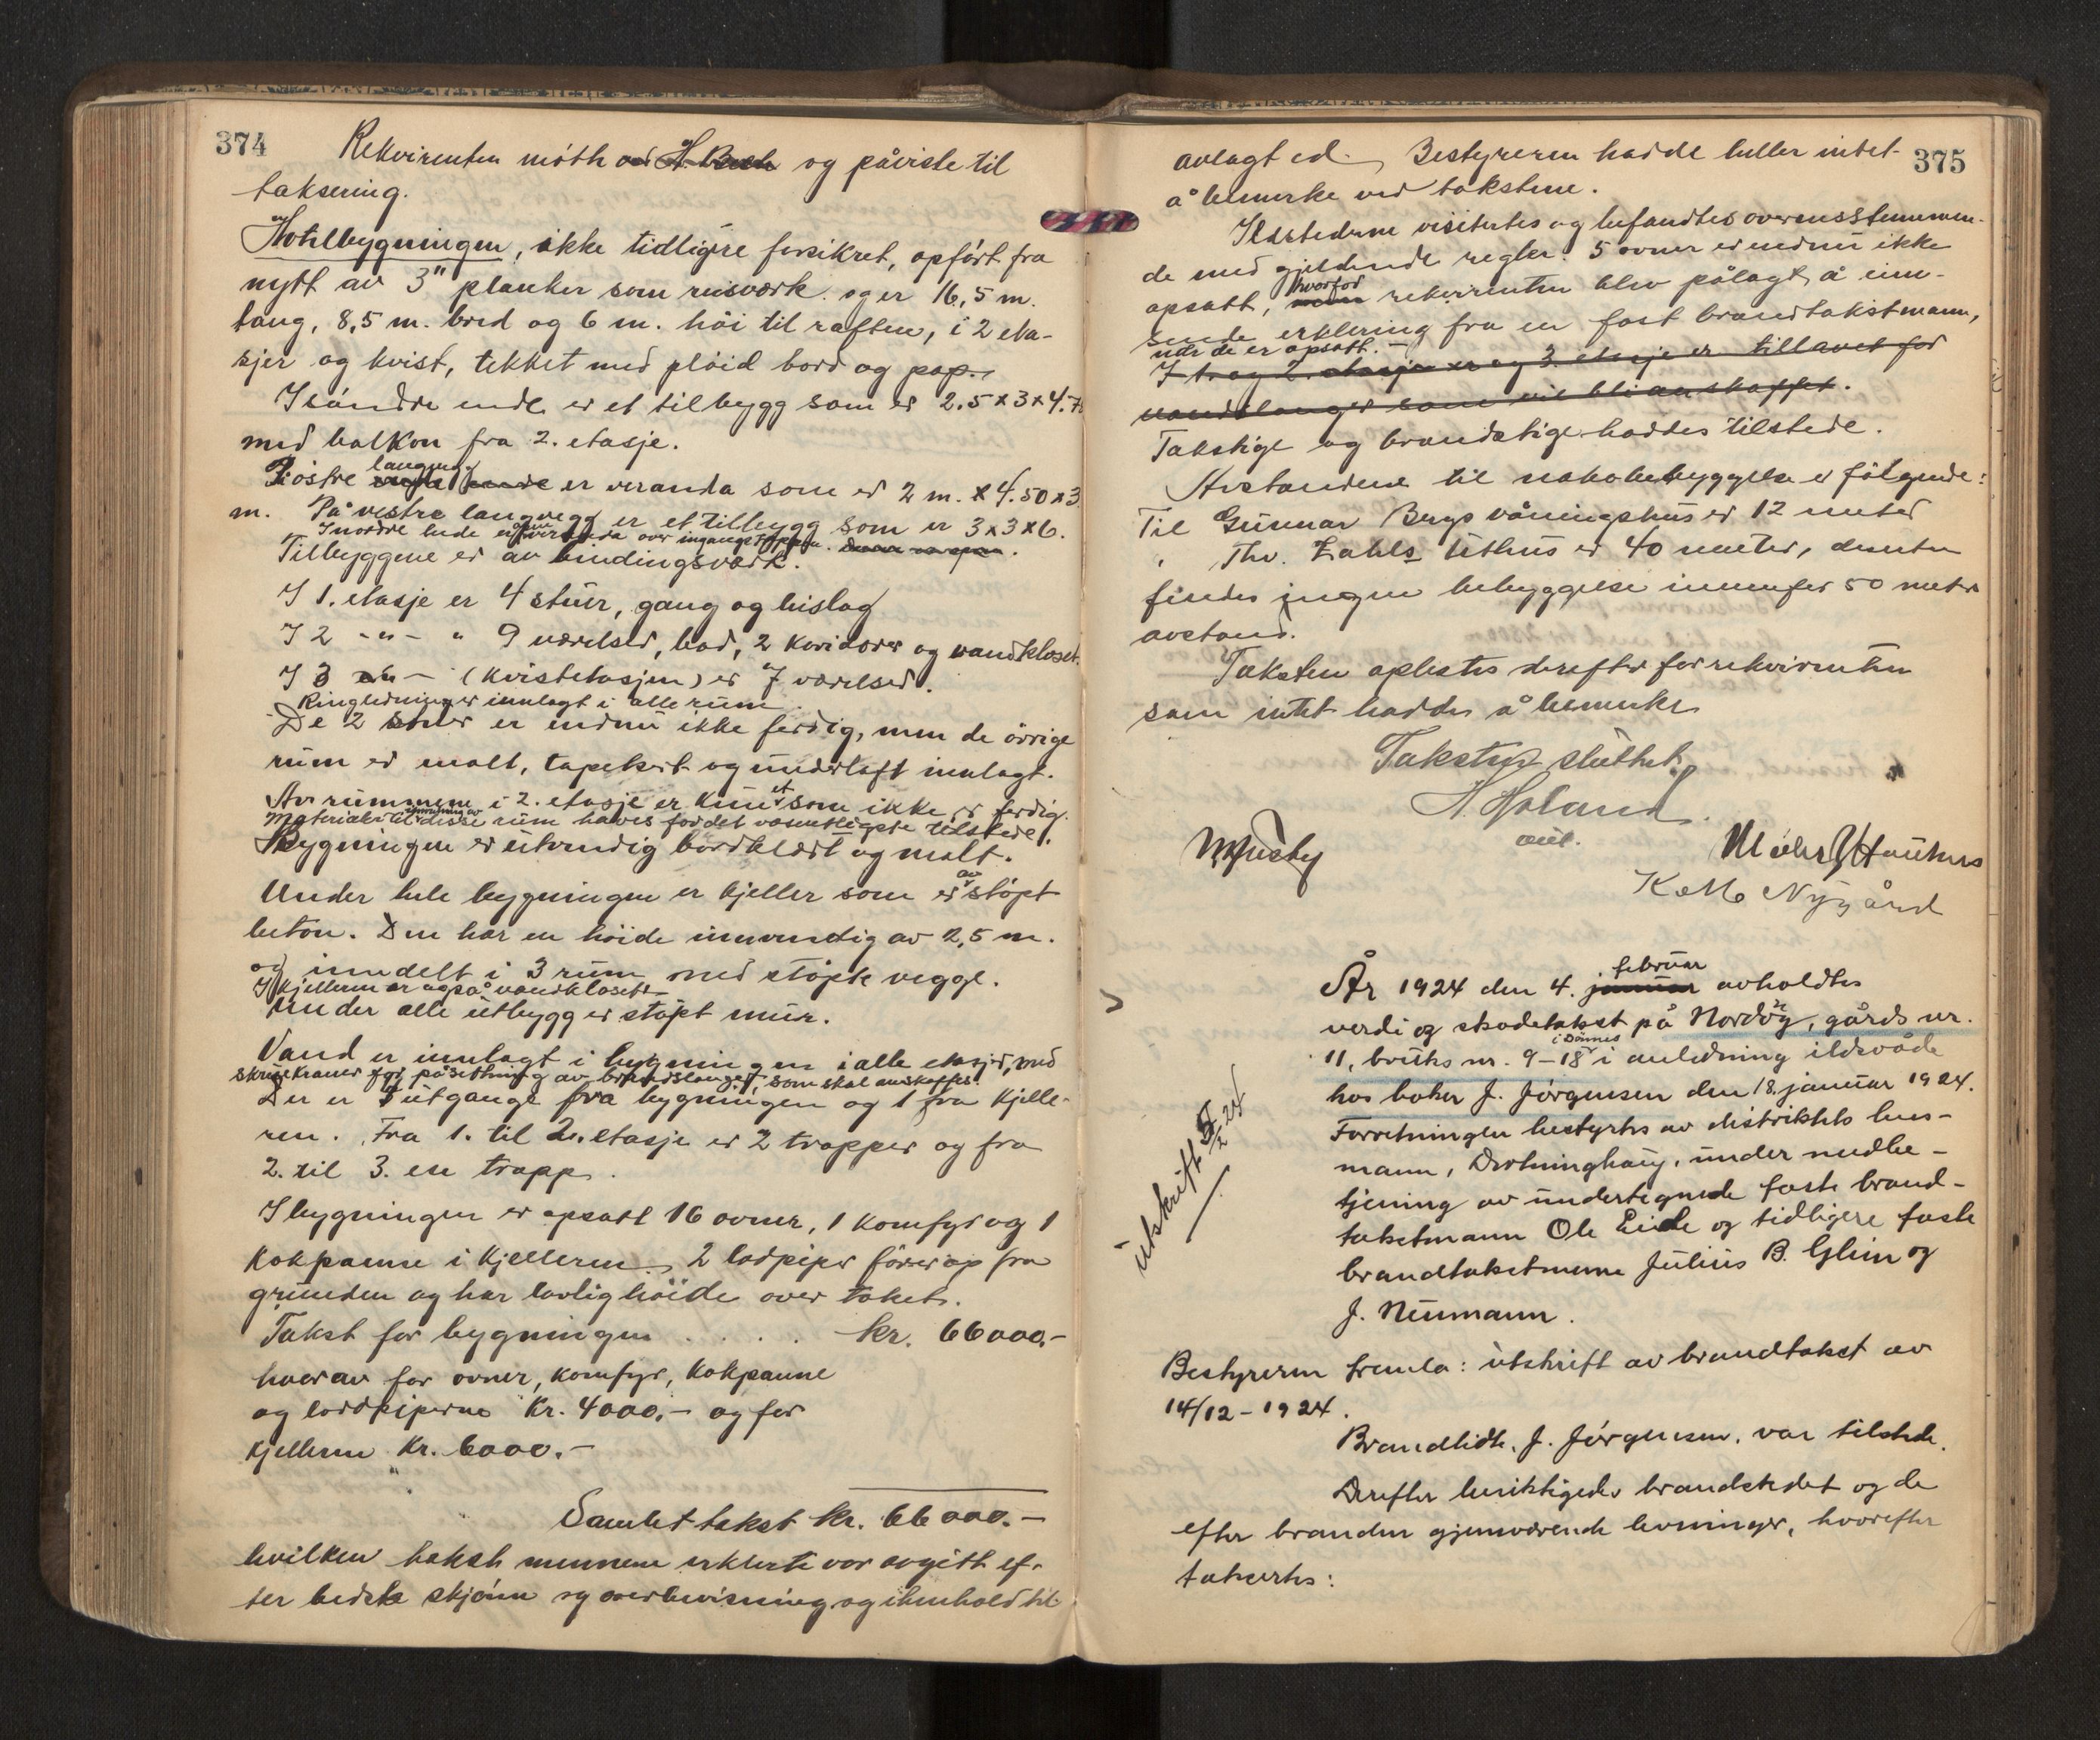 374
Rekvirenten møtte ved H. Bech og påviste til
taksering.
Hotelbygningen, ikke tidligere forsikret, opført fra
nytt av 3" planker som reisværk og er 16,5 m.
lang, 8,5 m. bred og 6 m. høi til raften, i 2 eta-
sjer og kvist, tekket med pløid bord og pap.
I søndre ende er et tilbygg som er 2.5 x 3 x 4.70
med balkon fra 2. etasje.
I østre langvegg er veranda som er 2 m. x 4.50 x 3
m. På vestre langvegg er et tilbygg som er 3 x 3 x 6.
I nordre ende er åpen veranda over ingangstrappen.
Tilbyggene er av bindingsværk.
I 1. etasje er 4 stuer, gang og bislag
I 2 -"- " 9 værelser, bad, 2 koridorer og vandkloset.
I 3 - (kvistetasjen) er 7 værelser.
Ringledninger innlagt i alle rum.
De 2 er endnu ikke ferdig, men de øvrige
rum er malt, tapetsert og underloft innlagt.
Av rummene i 2. etasje er kun et som ikke er ferdig.
Materialer til innredning av disse rum haves for det vesentligste tilstede.
Bygningen er utvendig bordklædt og malt.
Under hele bygningen er kjeller som er av støpt
beton. Den har en høide innvendig av 2,5 m.
og inndelt i 3 rum med støpte vegge.
I kjelleren er også vandkloset.
Under alle utbygg er støpt mur.
Vand er innlagt i bygningen i alle etasjer, med
skruekraner for påsetning av brandslanger, som skal anskaffes.
Der er 5 utgange fra bygningen og 1 fra kjelle-
ren. Fra 1. til 2. etasje er 2 trapper og fra
2. til 3. en trapp.
I bygningen er opsatt 16 ovner, 1 komfyr og 1
kokpanne i kjelleren. 2 lodpiper fører op fra
grunden og har lovlig høide over taket.
Takst for bygningen . . . . kr. 66000.-
hvorav for ovner, komfyr, kokpanne
og lordpiperne kr. 4000.- og for
kjelleren kr. 6000.-
Samlet takst kr. 66000.-
hvilken takst mennene erklerte var avgitt ef-
ter bedste skjønn og overbevisning og i henhold til
375
avlagt ed. Bestyreren hadde heller intet
å bemerke ved takstene.
Ildstederne visitertes og befandtes overensstemmen-
de med gjeldende regler. 5 ovner er endnu ikke
opsatt, hvorfor rekvirenten blev pålagt å inn-
sende erklering fra en fast brandtakstmann,
når de er opsatt.-
I 1. og 2. etasje er og 3. etasje er tillavet for
vandslanger som vil bli anskaffet.
Takstige og brandstige haddes tilstede.
Avstandene til nabobebyggelse er følgende:
Til Gunnar Bergs våningshus er 12 meter
" Thv. Zahls uthus er 40 meter, desuten
findes ingen bebyggelse innenfor 50 meters
avstand.
Taksten oplestes derefter for rekvirenten
som intet hadde å bemerke
Taksten sluttet.
H. Høland
aut.
K. M. Nygård
År 1924 den 4. januar februar avholdtes
verdi og skadetakst på Nordøy, gårds nr.
11, bruks nr. 9-18 i Dønnes i anledning ildsvåde
hos baker J. Jørgensen den 18. januar 1924.
Forretningen bestyrtes av distriktets lens-
mann, Dortninghaug, under medbe-
tjening av undertegnede faste brand-
takstmann Ole Eide og tidligere faste
brandtakstmenn Julius B. Glein og
J. Neumann.
utskrift 5/2 24
Bestyreren fremla: utskrift av brandtakst av
14/12 - 1924.
Brandlidte, J. Jørgensen, var tilstede.
Derefter besiktigedes brandstedet og de
efter branden gjenværende levninger, hvorefter
taksertes: